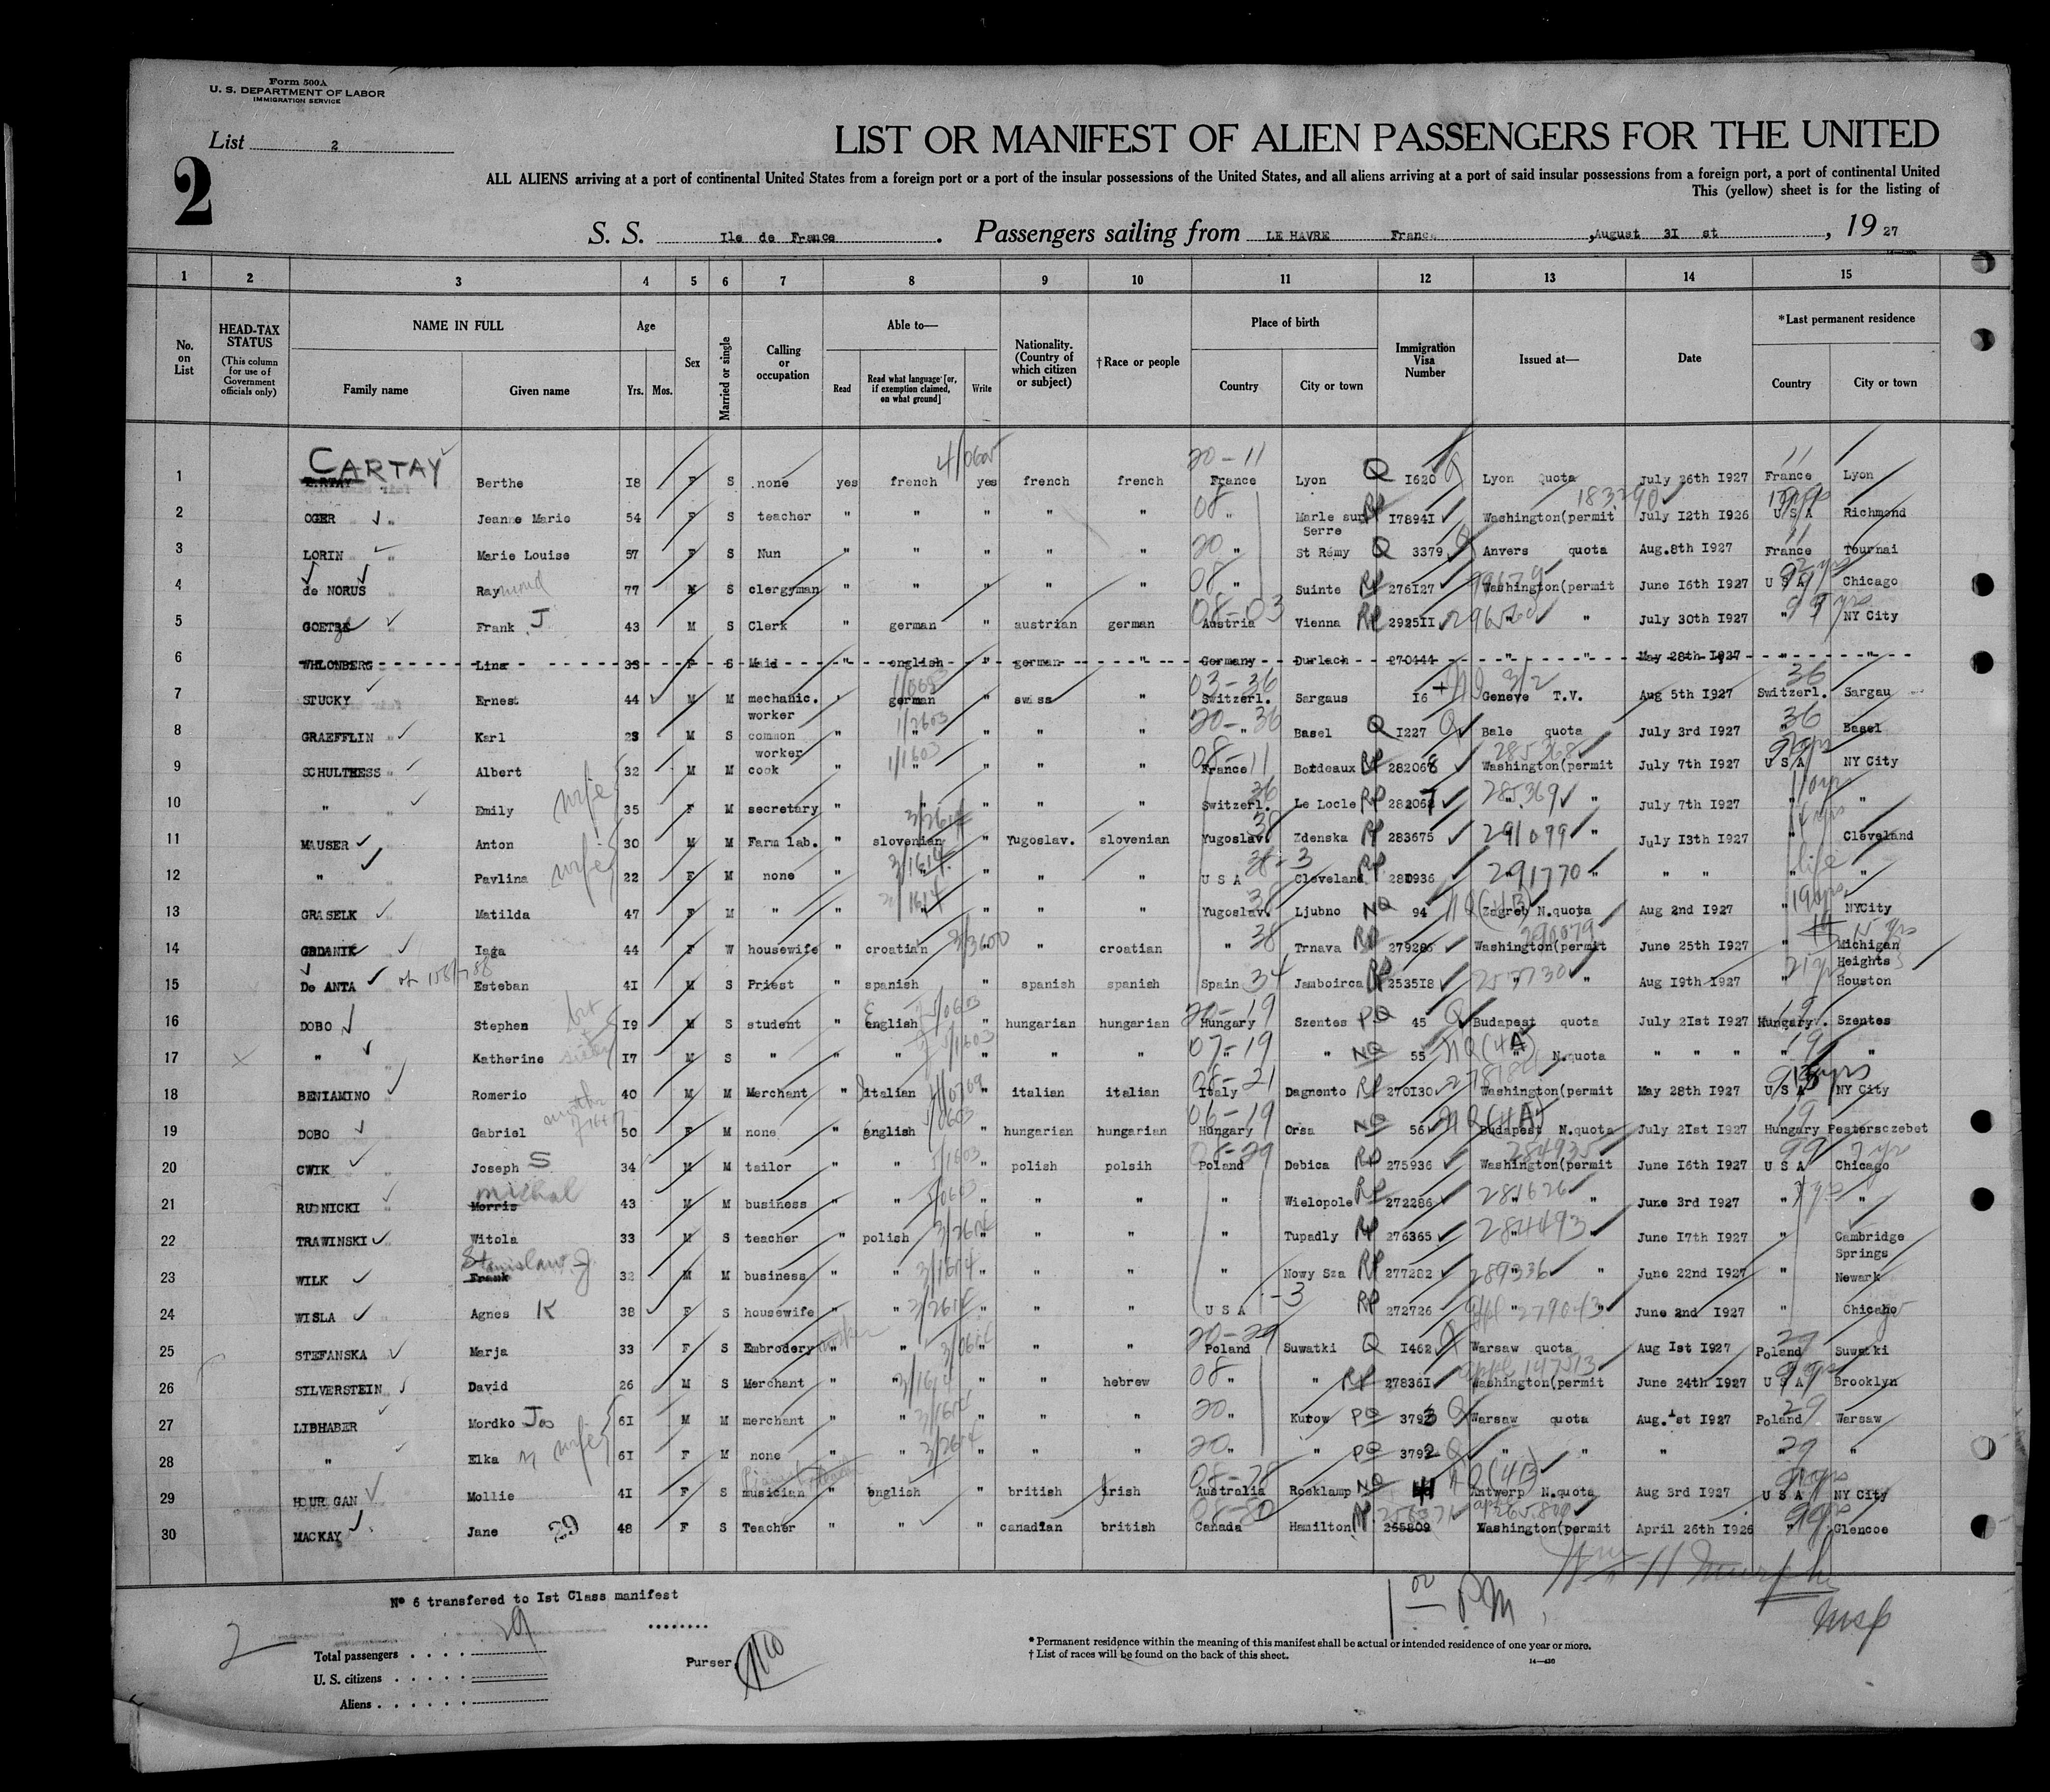 Form 500A
U. S. DEPARTMENT OF LABOR
IMMIGRATION SERVICE
List 2
2
LIST OR MANIFEST OF ALIEN PASSENGERS FOR THE UNITED
ALL ALIENS arriving at a port of continental United States from a foreign port or a port of the insular possessions of the United States, and all aliens arriving at a port of said insular possessions from a foreign port, a port of continental United
This (yellow) sheet is for the listing of
S. S. Ile de France. Passengers sailing from LE HAVRE France, August 3I st, 19 27
1 2 3 4 5 6 7 8 9 10 11 12 13 14 15
No. on List
HEAD-TAX STATUS
(This column for use of Government officials only)
NAME IN FULL
Family name Given name
Age
Yrs. Mos.
Sex
Married or single
Calling or occupation
Able to—
Read Read what language [or, if exemption claimed, on what ground] Write
Nationality. (Country of which citizen or subject)
†Race or people
Place of birth
Country City or town
Immigration Visa Number
Issued at—
Date
*Last permanent residence
Country City or town
CARTAY
1 Berthe I8 F S none yes french yes french french France Lyon Q I620 Lyon Quota July 26th I927 France Lyon
2 OGER " Jeanne Marie 54 F S teacher " " " " " " Marle sur Serre RP I7894I Washington(permit July I2th I926 U S A Richmond
3 LORIN " Marie Louise 57 F S Nun " " " " " " St Rémy Q 3379 Anvers quota Aug.8th I927 France Tournai
4 de NORUS Raymond 77 M S clergyman " " " " " " Suinte RP 276I27 Washington(permit June I6th I927 U S A Chicago
5 GOETZE " Frank J 43 M S Clerk " german " austrian german Austria Vienna RP 2925II " " July 30th I927 " NY City
6 WHLONBERG Lina 33 F S Maid " english " german " Germany Durlach 270444 " " May 28th I927 " "
7 STUCKY Ernest 44 M M mechanic. worker " german " swiss " Switzerl. Sargaus I6 Geneve T.V. Aug 5th I927 Switzerl. Sargau
8 GRAEFFLIN " Karl 23 M S common worker " " " " " " Basel Q I227 Bale quota July 3rd I927 " Basel
9 SCHULTHESS " Albert 32 M M cook " " " " " France Bordeaux RP 282068 Washington(permit July 7th I927 U S A NY City
10 " Emily wife 35 F M secretary " " " " " Switzerl. Le Locle RP 282067 285369 " July 7th I927 " "
11 MAUSER Anton 30 M M Farm lab. " slovenian " Yugoslav. slovenian Yugoslav. Zdenska RP 283675 291099 " July I3th I927 " Cleveland
12 " Pavlina wife 22 F M none " " " " " U S A Cleveland RP 280936 291770 " " " " "
13 GRASELK Matilda 47 F M " " " " " " Yugoslav. Ljubno NQ 94 Zagreb N.quota Aug 2nd I927 " NYCity
14 GRDANIK Iaga 44 F W housewife " croatian " croatian " Trnava RP 279286 Washington(permit June 25th I927 " Michigan Heights
15 De ANTA Esteban 4I M S Priest " spanish " spanish spanish Spain Jamboirca RP 2535I8 " " Aug I9th I927 " Houston
16 DOBO Stephen I9 M S student " english " hungarian hungarian Hungary Szentes PQ 45 Budapest quota July 2Ist I927 Hungary. Szentes
17 " Katherine I7 M S " " " " " " " " NQ 55 " N.quota " " " " "
18 BENIAMINO Romerio 40 M M Merchant " italian " italian italian Italy Dagnento RP 270I30 Washington(permit May 28th I927 U S A NY City
19 DOBO Gabriel 50 F M none " english " hungarian hungarian Hungary Orsa NQ 56 Budapest N.quota July 2Ist I927 Hungary Pestersczebet
20 CWIK Joseph S 34 M M tailor " " " polish polsih Poland Debica RP 275936 Washington(permit June I6th I927 U S A Chicago
21 RUDNICKI Michal Morris 43 M M business " " " " " " Wielopole RP 272286 281626 " June 3rd I927 " "
22 TRAWINSKI Witola 33 M S teacher " polish " " " " Tupadly RP 276365 284493 " June I7th I927 " Cambridge Springs
23 WILK Stanislaw J Frank 32 M M business " " " " " Nowy Sza RP 277282 289336 " June 22nd I927 " Newark
24 WISLA Agnes K 38 F S housewife " " " " " U S A RP 272726 279043 " June 2nd I927 " Chicaho
25 STEFANSKA Marja 33 F S Embrodery " " " " " Poland Suwatki Q I462 Warsaw quota Aug Ist I927 Poland Suwatki
26 SILVERSTEIN David 26 M S Merchant " " " " hebrew " " RP 27836I Washington(permit June 24th I927 U S A Brooklyn
27 LIBHABER Mordko Jos 6I M M merchant " " " " " " Kurow PQ 3793 Warsaw quota Aug. Ist I927 Poland Warsaw
28 " Elka wife 6I F M none " " " " " " " PQ 3792 " " " " "
29 HOURIGAN Mollie 4I F S musician " english " british irish Australia Rocklamp NQ Antwerp N.quota Aug 3rd I927 U S A NY City
30 MACKAY Jane 29 48 F S Teacher " " " canadian british Canada Hamilton 265809 Washington(permit April 26th I926 " Glencoe
N° 6 transfered to Ist Class manifest
2
Total passengers 29
U. S. citizens
Aliens
Purser
1 00 PM
Wm H Murphy
* Permanent residence within the meaning of this manifest shall be actual or intended residence of one year or more.
† List of races will be found on the back of this sheet.
14—430